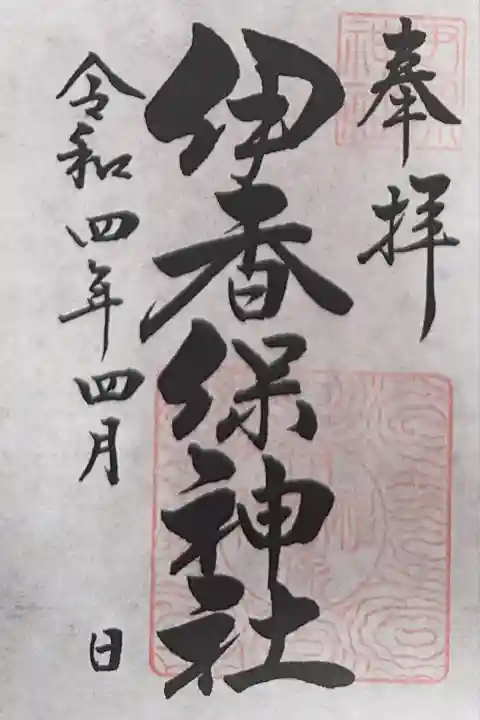 奉拝
伊香保神社
令和四年四月 日